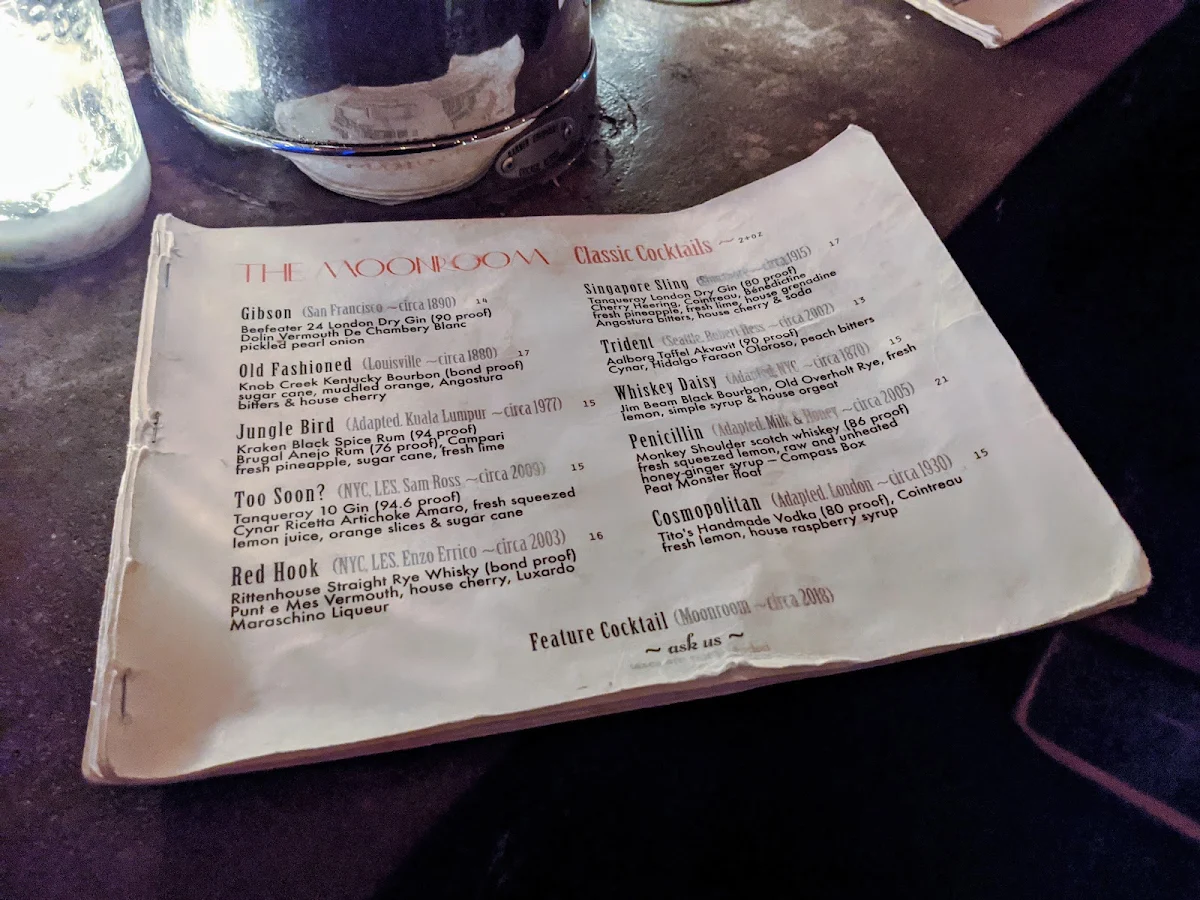 THE MOONROOM Classic Cocktails ~ 2+oz
Gibson (San Francisco ~circa 1890) 14
Beefeater 24 London Dry Gin (90 proof)
Dolin Vermouth De Chambery Blanc
pickled pearl onion
Old Fashioned (Louisville ~circa 1880) 17
Knob Creek Kentucky Bourbon (bond proof)
sugar cane, muddled orange, Angostura
bitters & house cherry
Jungle Bird (Adapted, Kuala Lumpur ~circa 1977) 15
Kraken Black Spice Rum (94 proof)
Brugal Anejo Rum (76 proof), Campari
fresh pineapple, sugar cane, fresh lime
Too Soon? (NYC, LES, Sam Ross ~circa 2009) 15
Tanqueray 10 Gin (94.6 proof)
Cynar Ricetta Artichoke Amaro, fresh squeezed
lemon juice, orange slices & sugar cane
Red Hook (NYC, LES, Enzo Errico ~circa 2003) 16
Rittenhouse Straight Rye Whisky (bond proof)
Punt e Mes Vermouth, house cherry, Luxardo
Maraschino Liqueur
Singapore Sling ~circa 1915) 17
Tanqueray London Dry Gin (80 proof)
Cherry Heering, Cointreau, Bénédictine
fresh pineapple, fresh lime, house grenadine
Angostura bitters, house cherry & soda
Trident (Seattle, Robert Hess ~circa 2002) 13
Aalborg Taffel Akvavit (90 proof)
Cynar, Hidalgo Faraon Oloroso, peach bitters
Whiskey Daisy (Adapted, NYC ~circa 1870) 15
Jim Beam Black Bourbon, Old Overholt Rye, fresh
lemon, simple syrup & house orgeat
Penicillin (Adapted, Milk & Honey ~circa 2005) 21
Monkey Shoulder scotch whiskey (86 proof)
fresh squeezed lemon, raw and unheated
honey-ginger syrup – Compass Box
Peat Monster float
Cosmopolitan (Adapted, London ~circa 1930) 15
Tito's Handmade Vodka (80 proof), Cointreau
fresh lemon, house raspberry syrup
Feature Cocktail (Moonroom ~circa 2018)
~ ask us ~